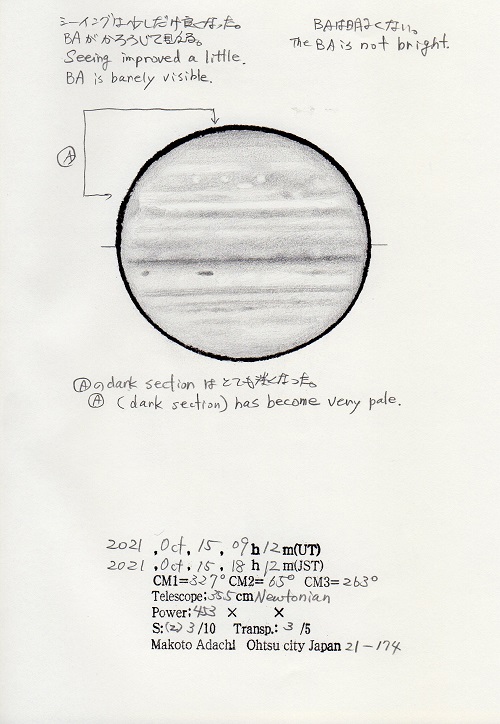 シーイングは少しだけ良くなった。
BAがかろうじて見える。
Seeing improved a little.
BA is barely visible.
BAは明るくない。
The BA is not bright.
Ⓐ
Ⓐのdark section はとても淡くなった。
Ⓐ (dark section) has become very pale.
2021, Oct, 15, 09 h 12 m(UT)
2021, Oct, 15, 18 h 12 m(JST)
CM1=327° CM2= 65° CM3= 263°
Telescope; 35.5 cm Newtonian
Power; 453 × ×
S: (2) 3 /10 Transp.: 3 /5
Makoto Adachi Ohtsu city Japan 21-174